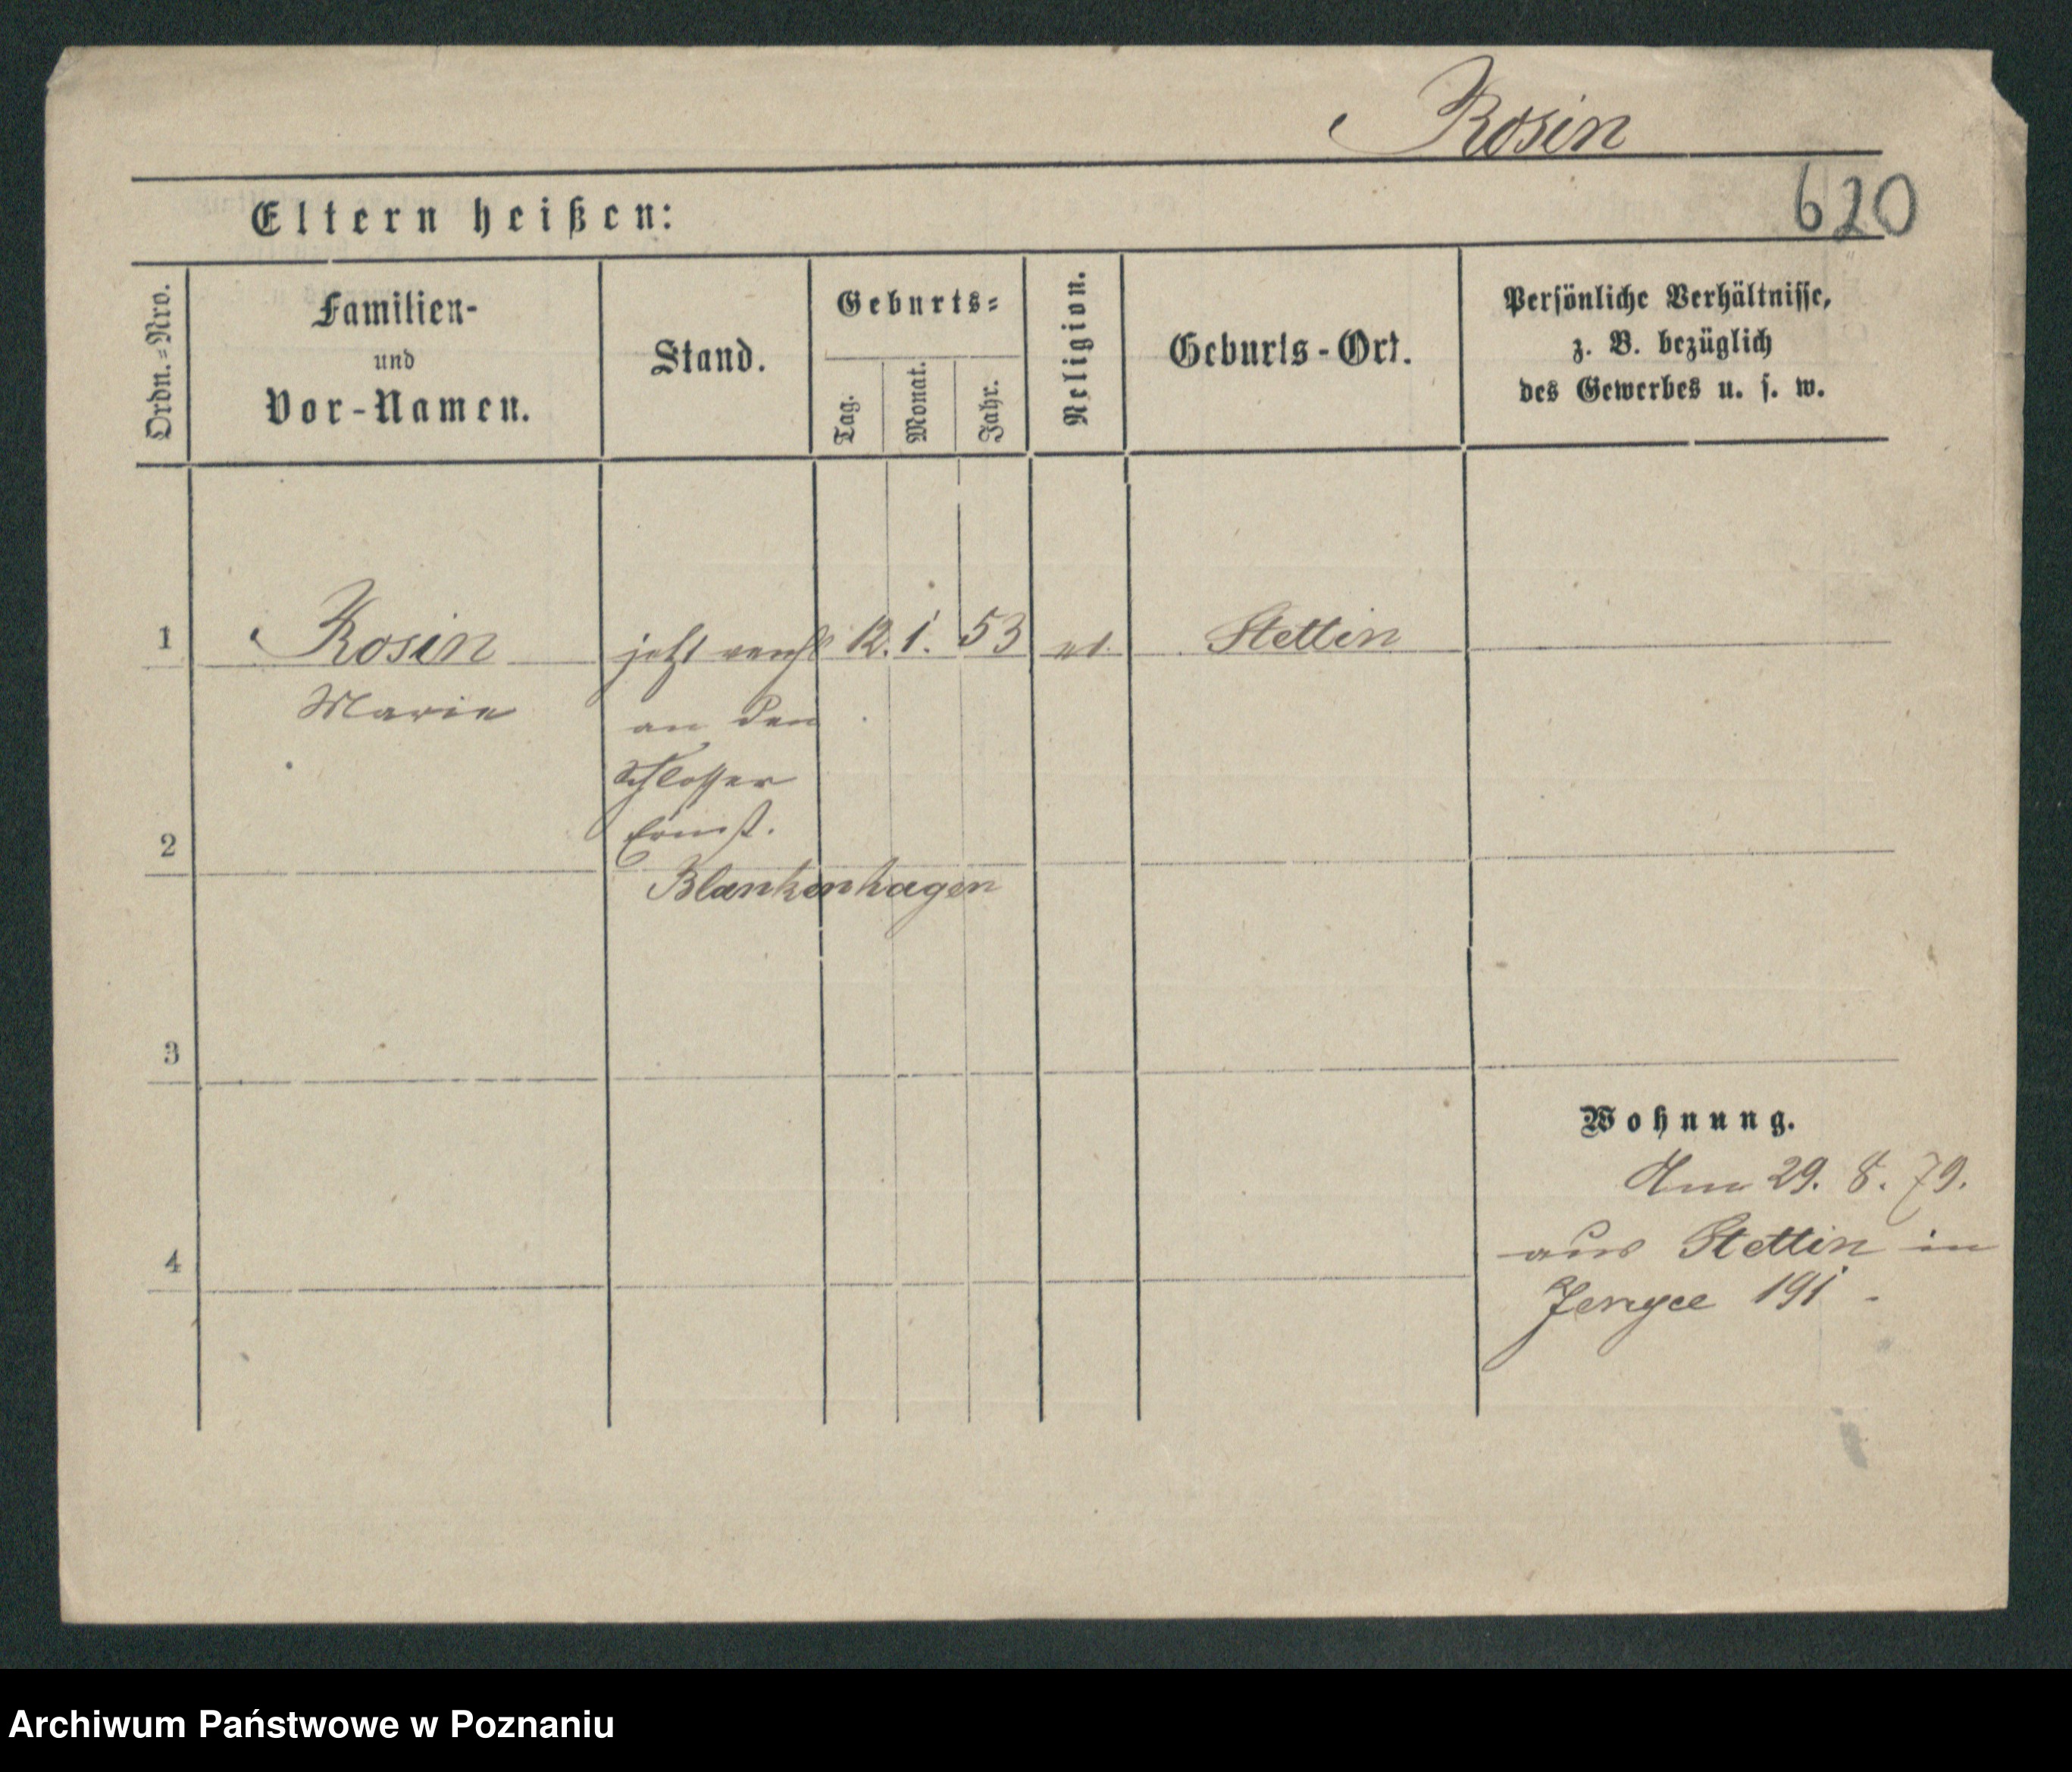 Rosin
620
Eltern heißen:
Ordn.=Nro.
Familien-
und
Vor-Namen.
Stand.
Geburts=
Tag.
Monat.
Jahr.
Religion.
Geburts-Ort.
Persönliche Verhältnisse,
z. B. bezüglich
des Gewerbes u. s. w.
1
Rosin
jetzt
12. 1. 53
Stettin
Marie
an den
Schlosser
2
Ernst.
Blankenhagen
3
Wohnung.
Am 29. 8. 79.
aus Stettin in
4
191 -
Archiwum Państwowe w Poznaniu